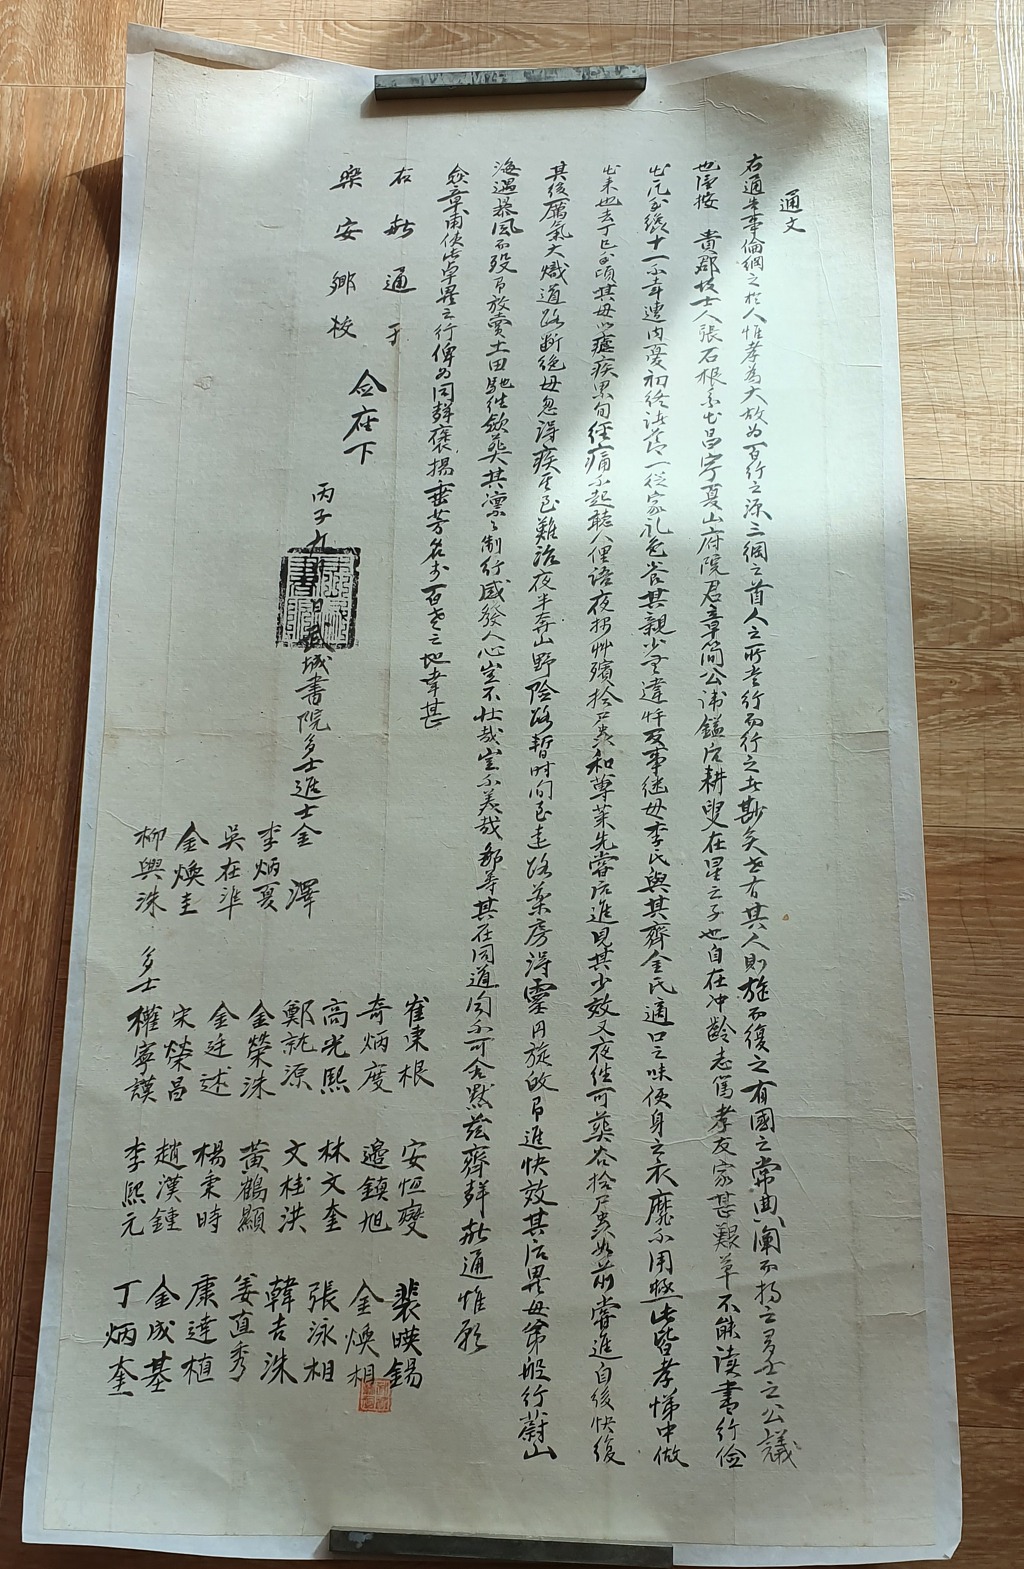 通文
右通告事倫綱之於人惟孝為大故為百行之源三綱之首人之所當行而行之者尠矣世有其人則旌而復之有國之常典闡而揚之多士之公議
也謹按 貴郡故士人張石根系出昌寧夏山府院君章簡公諱鎰后耕叟在星之子也自在冲齡志篤孝友家甚艱草不能读書行儉
出凡至纔十一不幸遭内憂初終诸節一從家礼色養其親少無違忤及事继母李氏與其齊金氏適口之味便身之衣靡不用極此皆孝悌中做
出来也去丁巳頃其母以瘧疾累旬往痛不起聽人俚语夜掘艸殯拾尸糞和薄茶先甞后進見其少效又夜往可葬谷拾尸糞如前甞進自後快復
其後厲氣大熾道路断绝母忽得疾至難治夜半奔山野险路暫时间走路藥房得靈丹旋故即進快效其后異母弟般行蔚山
海遇暴風而殁即放賣土田馳往斂葬其凛凛制行感發人心豈不壮哉豈不美哉鄙等其在同道间不可含默玆齊聲敝通惟願
僉章甫使此卓異之行俾为同聲褒揚垂芳名於百世之地幸甚
右敝通于
樂安鄉校
僉座下
丙子 城書院多士進士金 澤
李炳夏
吳在準
金煥圭
柳興洙
多士 權寧謨 李熙元 丁炳奎
宋榮昌 趙漢鍾 金成基
金廷述 楊秉時 康達植
金榮洙 黃鶴顯 姜直秀
鄭說源 文桂洪 韓吉洙
高光熙 林文奎 張泳相
奇炳度 邊鎮旭 金煥相
崔東根 安恒燮 裴暎錫